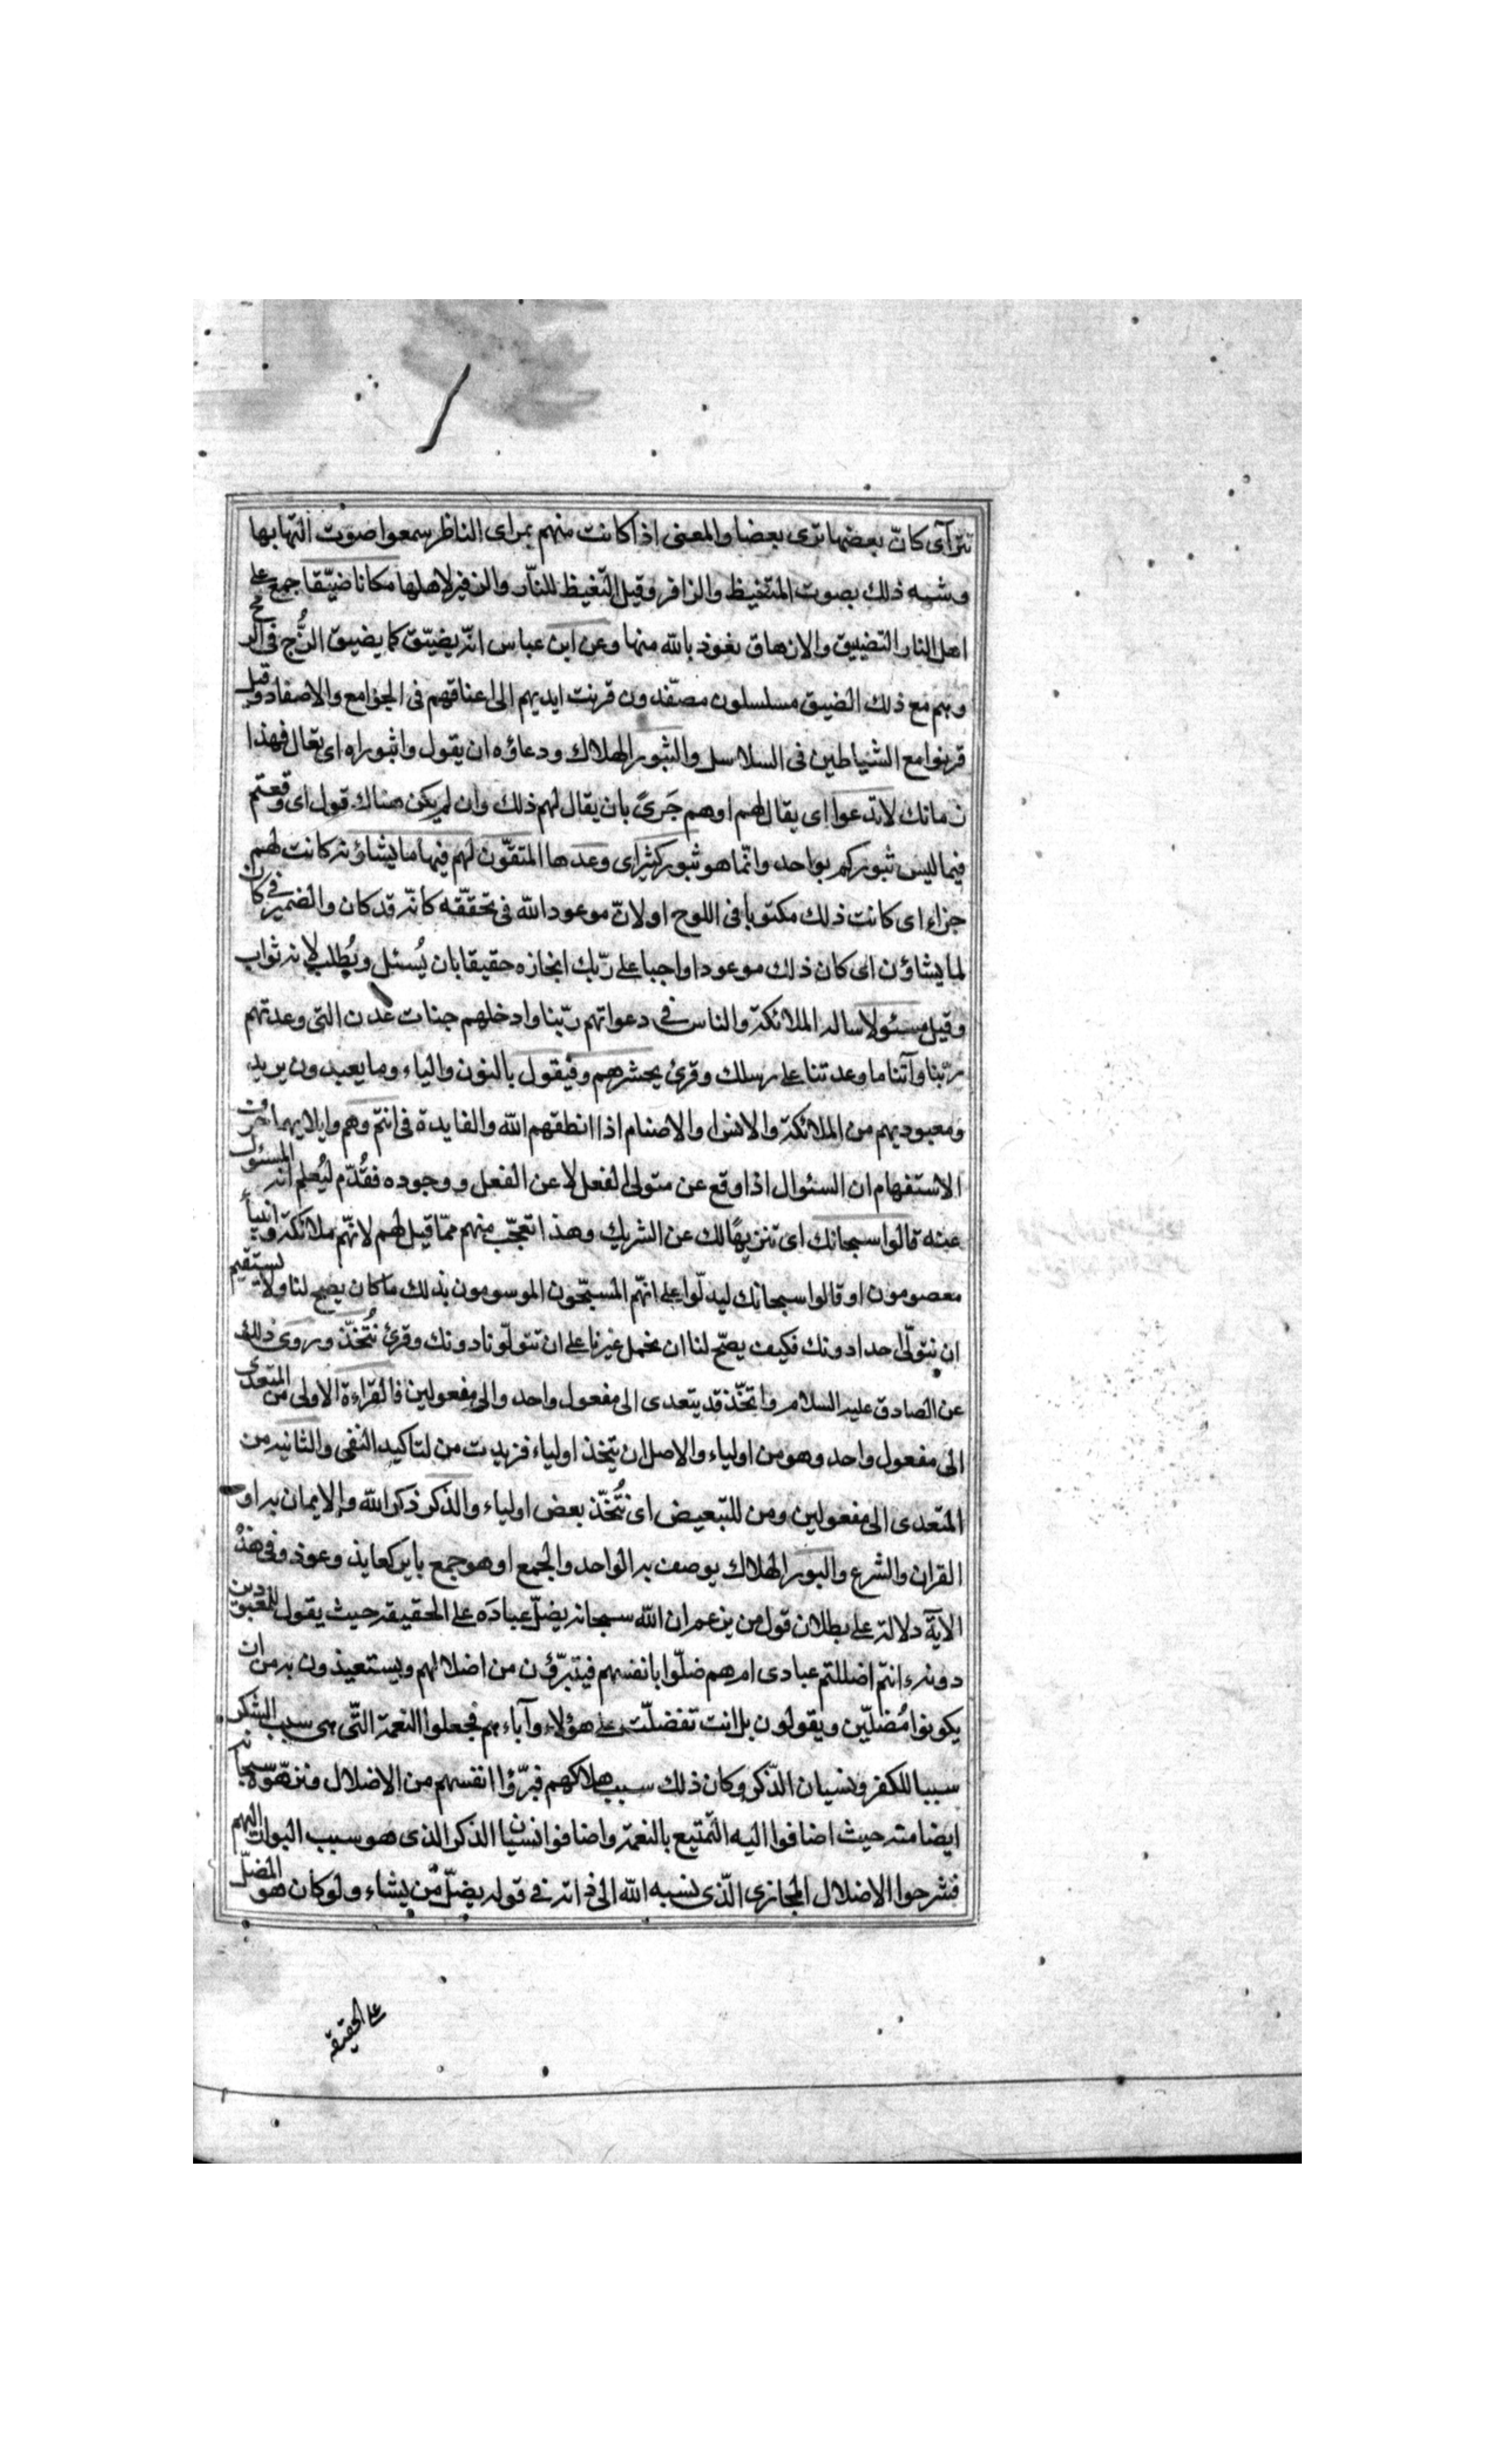 تترآى كانّ بعضها ترى بعضا والمعنى اذا كانت منهم بمراى الناظر سمعوا صوت التهابها
وشبه ذلك بصوت المتغيظ والزافر وقيل التغيظ للنّار والزفير لاهلها مكانا ضيّقا جمع على
اهل النار التضييق والارهاق نعوذ بالله منها وعن ابن عباس انّه يضيّق كما يضيق الزُّج فى الرمح
وهم مع ذلك الضيق مسلسلون مصفّدون قرنت ايديهم الى اعناقهم فى الجوامع والاصفاد وقيل
قرنوا مع الشياطين فى السلاسل والثبور الهلاك ودعاؤه ان يقول واثبوراه اى تعال فهذا
زمانك لا تدعوا اى يقال لهم او هم جَرىً بان يقال لهم ذلك وان لم يكن هناك قول اى وقعتم
فيما ليس ثبوركم بواحد وانّما هو ثبور كثير اى وعدها المتقّون لهم فيها ما يشاؤن كانت لهم
جزاء اى كانت ذلك مكتوبا فى اللوح او لانّ موعود الله فى تحققّه كانّه قد كان والضمير فى كان
لما يشاؤن اى كان ذلك موعودا واجبا على ربّك انجازه حقيقا بان يُسئل ويُطلب لانه ثواب
وقيل مسئولا ساله الملائكة والناس فى دعواتهم ربّنا وادخلهم جنات عدن التى وعدتهم
ربّنا وآتنا ما وعدتنا على رسلك وقرئ يحشرهم وفيقول بالنون والياء وما يعبدون يريد
ومعبوديهم من الملائكة والانس والاصنام اذا انطقهم الله والفايدة فى انتم وهم وايلايهما حرف
الاستفهام ان السئوال اذا وقع عن متولى الفعل لا عن الفعل ووجوده فقُدّم ليُعلم انه المسئول
عنه قالوا سبحانك اى تنزيهًا لك عن الشريك وهذا تعجّب منهم ممّا قيل لهم لانّهم ملائكة وانبياء
معصومون او قالوا سبحانك ليدلّوا على انّهم المسبّحون الموسومون بذلك ما كان يصح لنا ولا يستقيم
ان نتولّى احدا دونك فكيف يصحّ لنا ان نحمل غيرنا على ان تتولّونا دونك وقرئ نُتَّخذ وروى ذلك
عن الصادق عليه السلام واتخّذ قد يتعدى الى مفعول واحد والى مفعولين فالقراءة الاولى من المتعدى
الى مفعول واحد وهو من اولياء والاصل ان يتخذ اولياء فزيدت من لتاكيد النفى والثانيه من
المتعدى الى مفعولين ومن للتبعيض اى نُتَّخذ بعض اولياء والذكر ذكر الله والايمان به او
القران والشرع والبور الهلاك يوصف به الواحد والجمع او هو جمع باير كعايذ وعوذ وفى هذه
الآية دلالة على بطلان قول من يزعم ان الله سبحانه يضلّ عباده على الحقيقه حيث يقول للمعبودين
دونه ءانتم اضللتم عبادى ام هم ضلّوا بانفسهم فيتبرّؤن من اضلالهم ويستعيذون به من ان
يكونوا مُضلّين ويقولون بل انت تفضلّت على هؤلاء وآباءهم فجعلوا النعمة التّى هى سبب الشكر
سببا للكفر ونسيان الذّكر وكان ذلك سبب هلاكهم فبرّؤا انفسهم من الاضلال ونزهوّه سبحانه
ايضا منه حيث اضافوا اليه التمتيع بالنعمة واضافوا نسيان الذكر الذى هو سبب البوار اليهم
فشرحوا الاضلال المجازى الذّى نسبه الله الى ذاته فى قوله يضلّ من يشاء ولو كان هو المضلّ
على الحقيقة